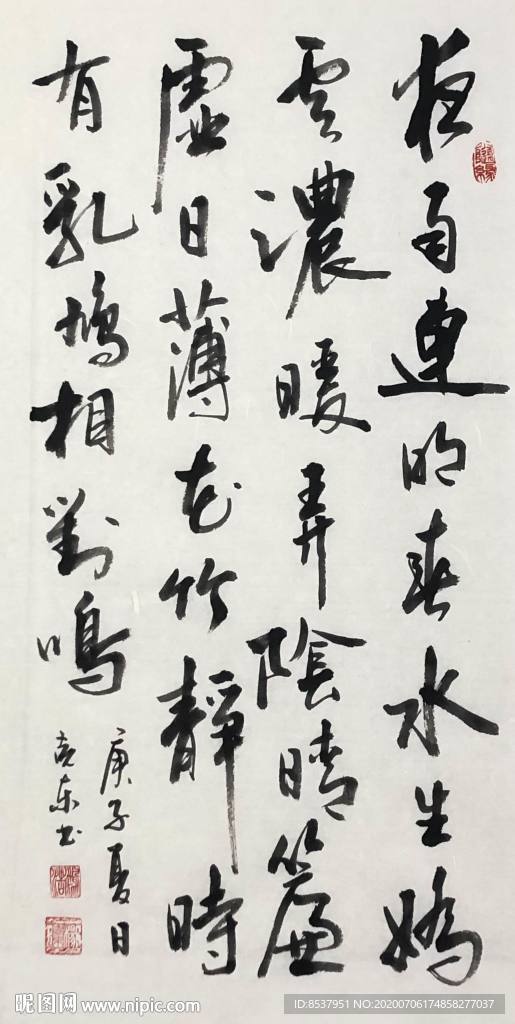 夜雨連明春水生嬌
雲濃暖弄陰晴簾
虛日薄花竹靜時
有乳鳩相對鳴
庚子夏日
志东书
昵图网 www.nipic.com
ID:8537951 NO:20200706174858277037